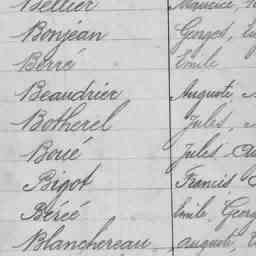 Bellier Maurice,
Bonjean Georges, Eu
Berré Emile
Beaudrier Auguste,
Botherel Jules,
Boué Jules, Au
Bigot Francis,
Béréé Emile, Georg
Blanchereau Auguste, E